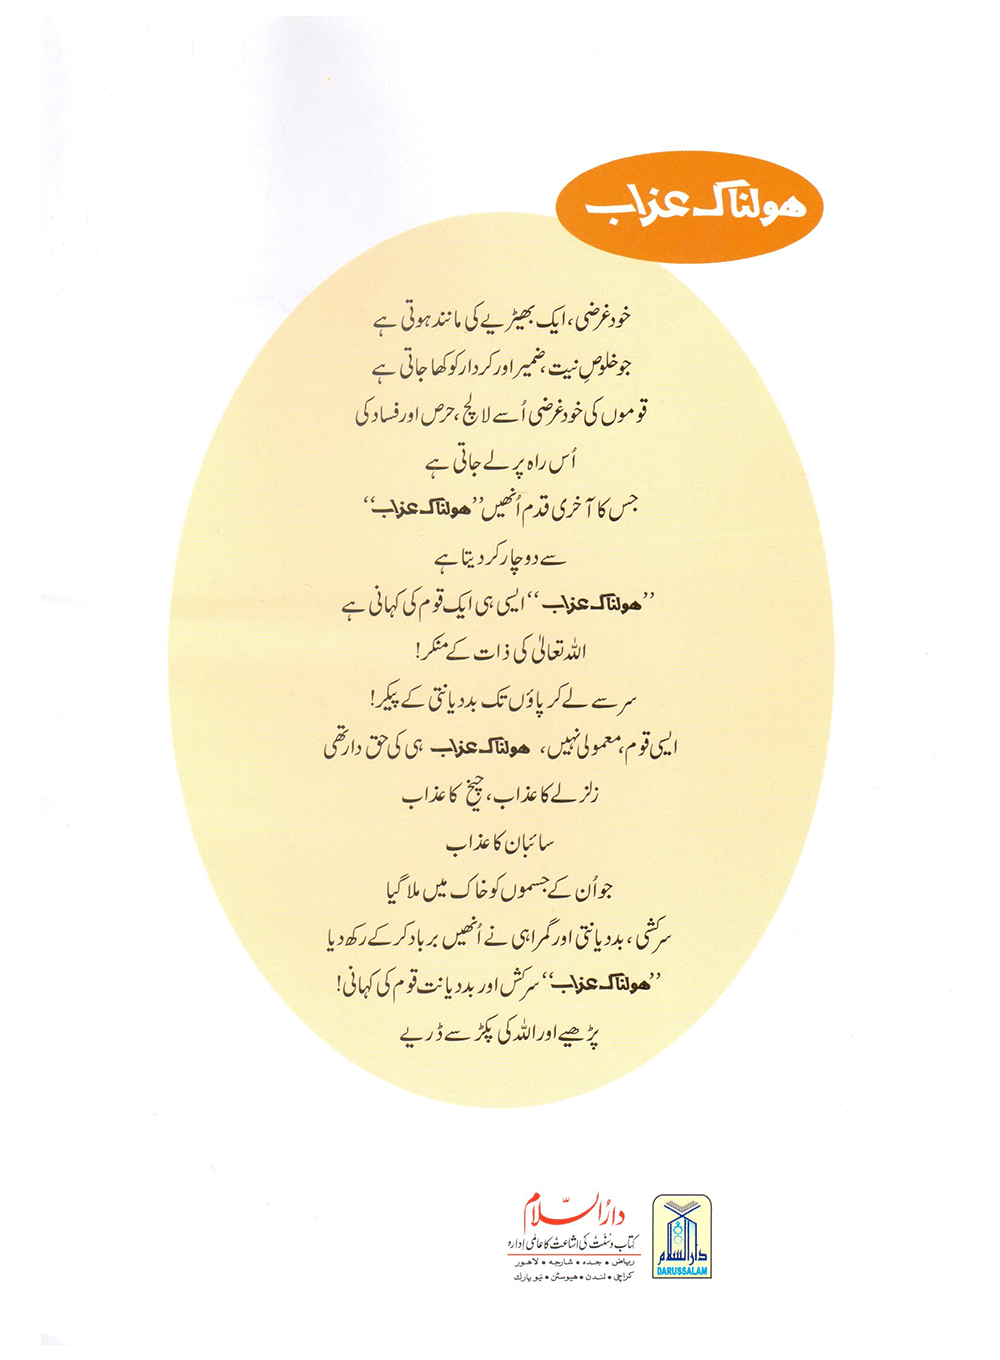 هولناک عذاب
خود غرضی، ایک بھیڑیے کی مانند ہوتی ہے
جو خلوصِ نیت، ضمیر اور کردار کو کھا جاتی ہے
قوموں کی خود غرضی اُسے لالچ، حرص اور فساد کی
اُس راہ پر لے جاتی ہے
جس کا آخری قدم اُنھیں ”هولناک عذاب“
سے دو چار کر دیتا ہے
”هولناک عذاب“ ایسی ہی ایک قوم کی کہانی ہے
اللہ تعالیٰ کی ذات کے منکر!
سر سے لے کر پاؤں تک بددیانتی کے پیکر!
ایسی قوم، معمولی نہیں، هولناک عذاب ہی کی حق دار تھی
زلزلے کا عذاب، چیخ کا عذاب
سائبان کا عذاب
جو اُن کے جسموں کو خاک میں ملا گیا
سرکشی، بددیانتی اور گمراہی نے اُنھیں برباد کر کے رکھ دیا
”هولناک عذاب“ سرکش اور بددیانت قوم کی کہانی!
پڑھیے اور اللہ کی پکڑ سے ڈریے
دارُالسّلام
کتاب و سنت کی اشاعت کا عالمی ادارہ
ریاض • جدہ • شارجہ • لاہور
کراچی • لندن • هیوسٹن • نیو یارک
دارالسلام
DARUSSALAM